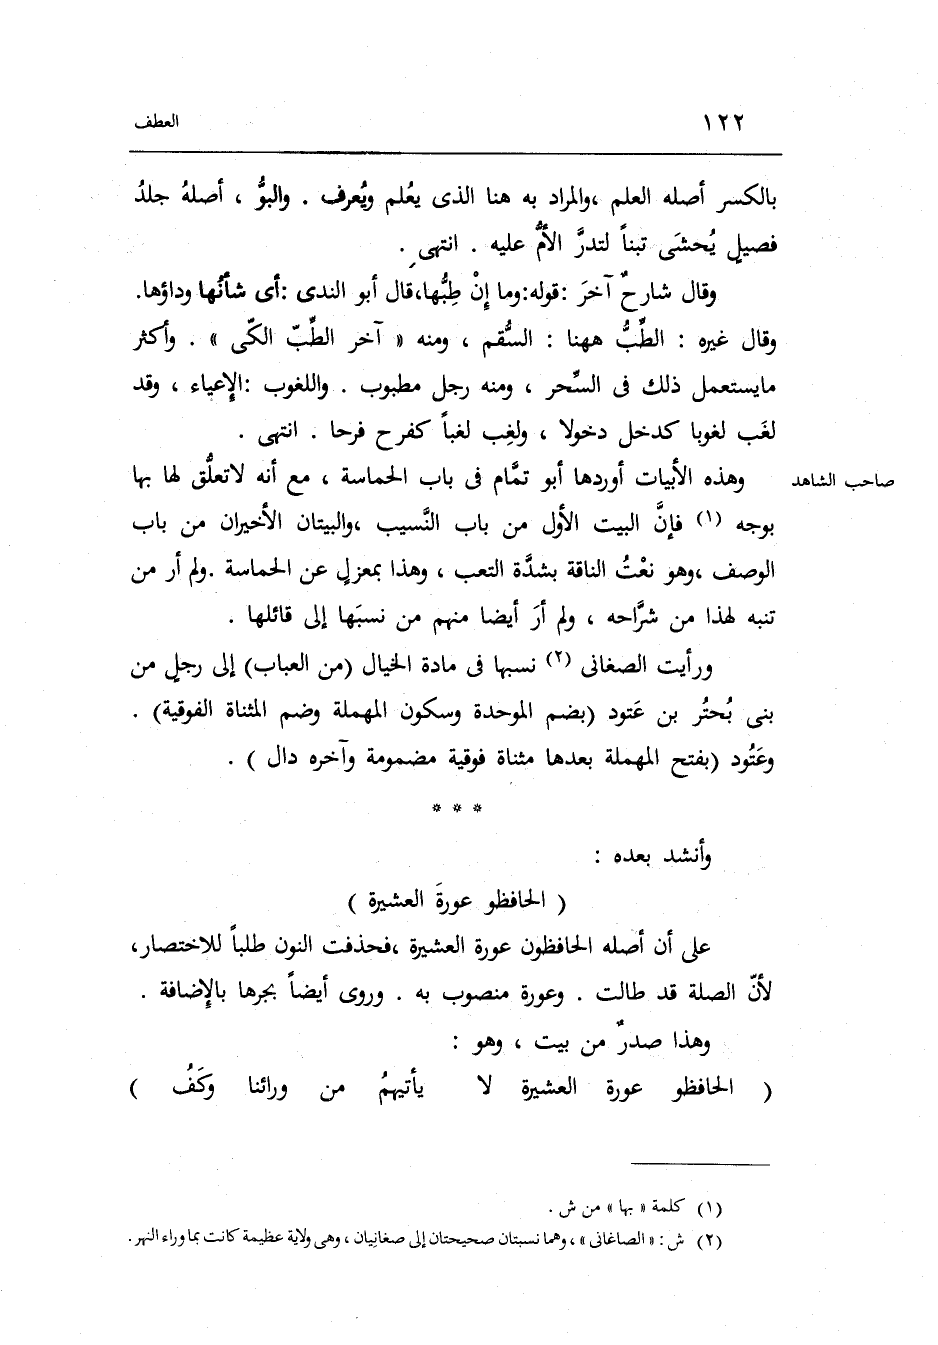 ١٢٢ العطف
بالكسر أصله العلم ،والمراد به هنا الذى يعُلم ويُعرف . والبوُّ ، أصلهُ جلدُ
فصيلٍ يُحشَى تبناً لتدرَّ الأمُّ عليه . انتهى .
وقال شارحٌ آخرَ :قوله:وما إنْ طِبُّها،قال أبو الندى :أى شأنُها وداؤها.
وقال غيره : الطِّبُّ ههنا : السُّقم ، ومنه « آخر الطِّبّ الكّى » . وأكثر
مايستعمل ذلك فى السِّحر ، ومنه رجل مطبوب . واللغوب :الإعياء ، وقد
لغَب لغوبا كدخل دخولا ، ولغِب لغباً كفرح فرحا . انتهى .
صاحب الشاهد وهذه الأبيات أوردها أبو تمَّام فى باب الحماسة ، مع أنه لاتعلُّق لها بها
بوجه (١) فإنَّ البيت الأول من باب النَّسيب ،والبيتان الأخيران من باب
الوصف ،وهو نعْتُ الناقة بشدَّة التعب ، وهذا بمعزلٍ عن الحماسة .ولم أر من
تنبه لهذا من شرَّاحه ، ولم أرَ أيضا منهم من نسبَها إلى قائلها .
ورأيت الصغانى (٢) نسبها فى مادة الخيال (من العباب) إلى رجلٍ من
بنى بُحتُر بن عَتود (بضم الموحدة وسكون المهملة وضم المثناة الفوقية) .
وعَتُود (بفتح المهملة بعدها مثناة فوقية مضمومة وآخره دال ) .
* * *
وأنشد بعده :
( الحافظو عورةَ العشيرة )
على أن أصله الحافظون عورة العشيرة ،فحذفت النون طلباً للاختصار،
لأنّ الصلة قد طالت . وعورة منصوب به . وروى أيضاً بجرها بالإضافة .
وهذا صدرٌ من بيت ، وهو :
( الحافظو عورة العشيرة لا يأتيهمُ من ورائنا وكَفُ )
(١) كلمة « بها » من ش .
(٢) ش : « الصاغانى » ، وهما نسبتان صحيحتان إلى صغانِيان ، وهى ولاية عظيمة كانت بما وراء النهر .